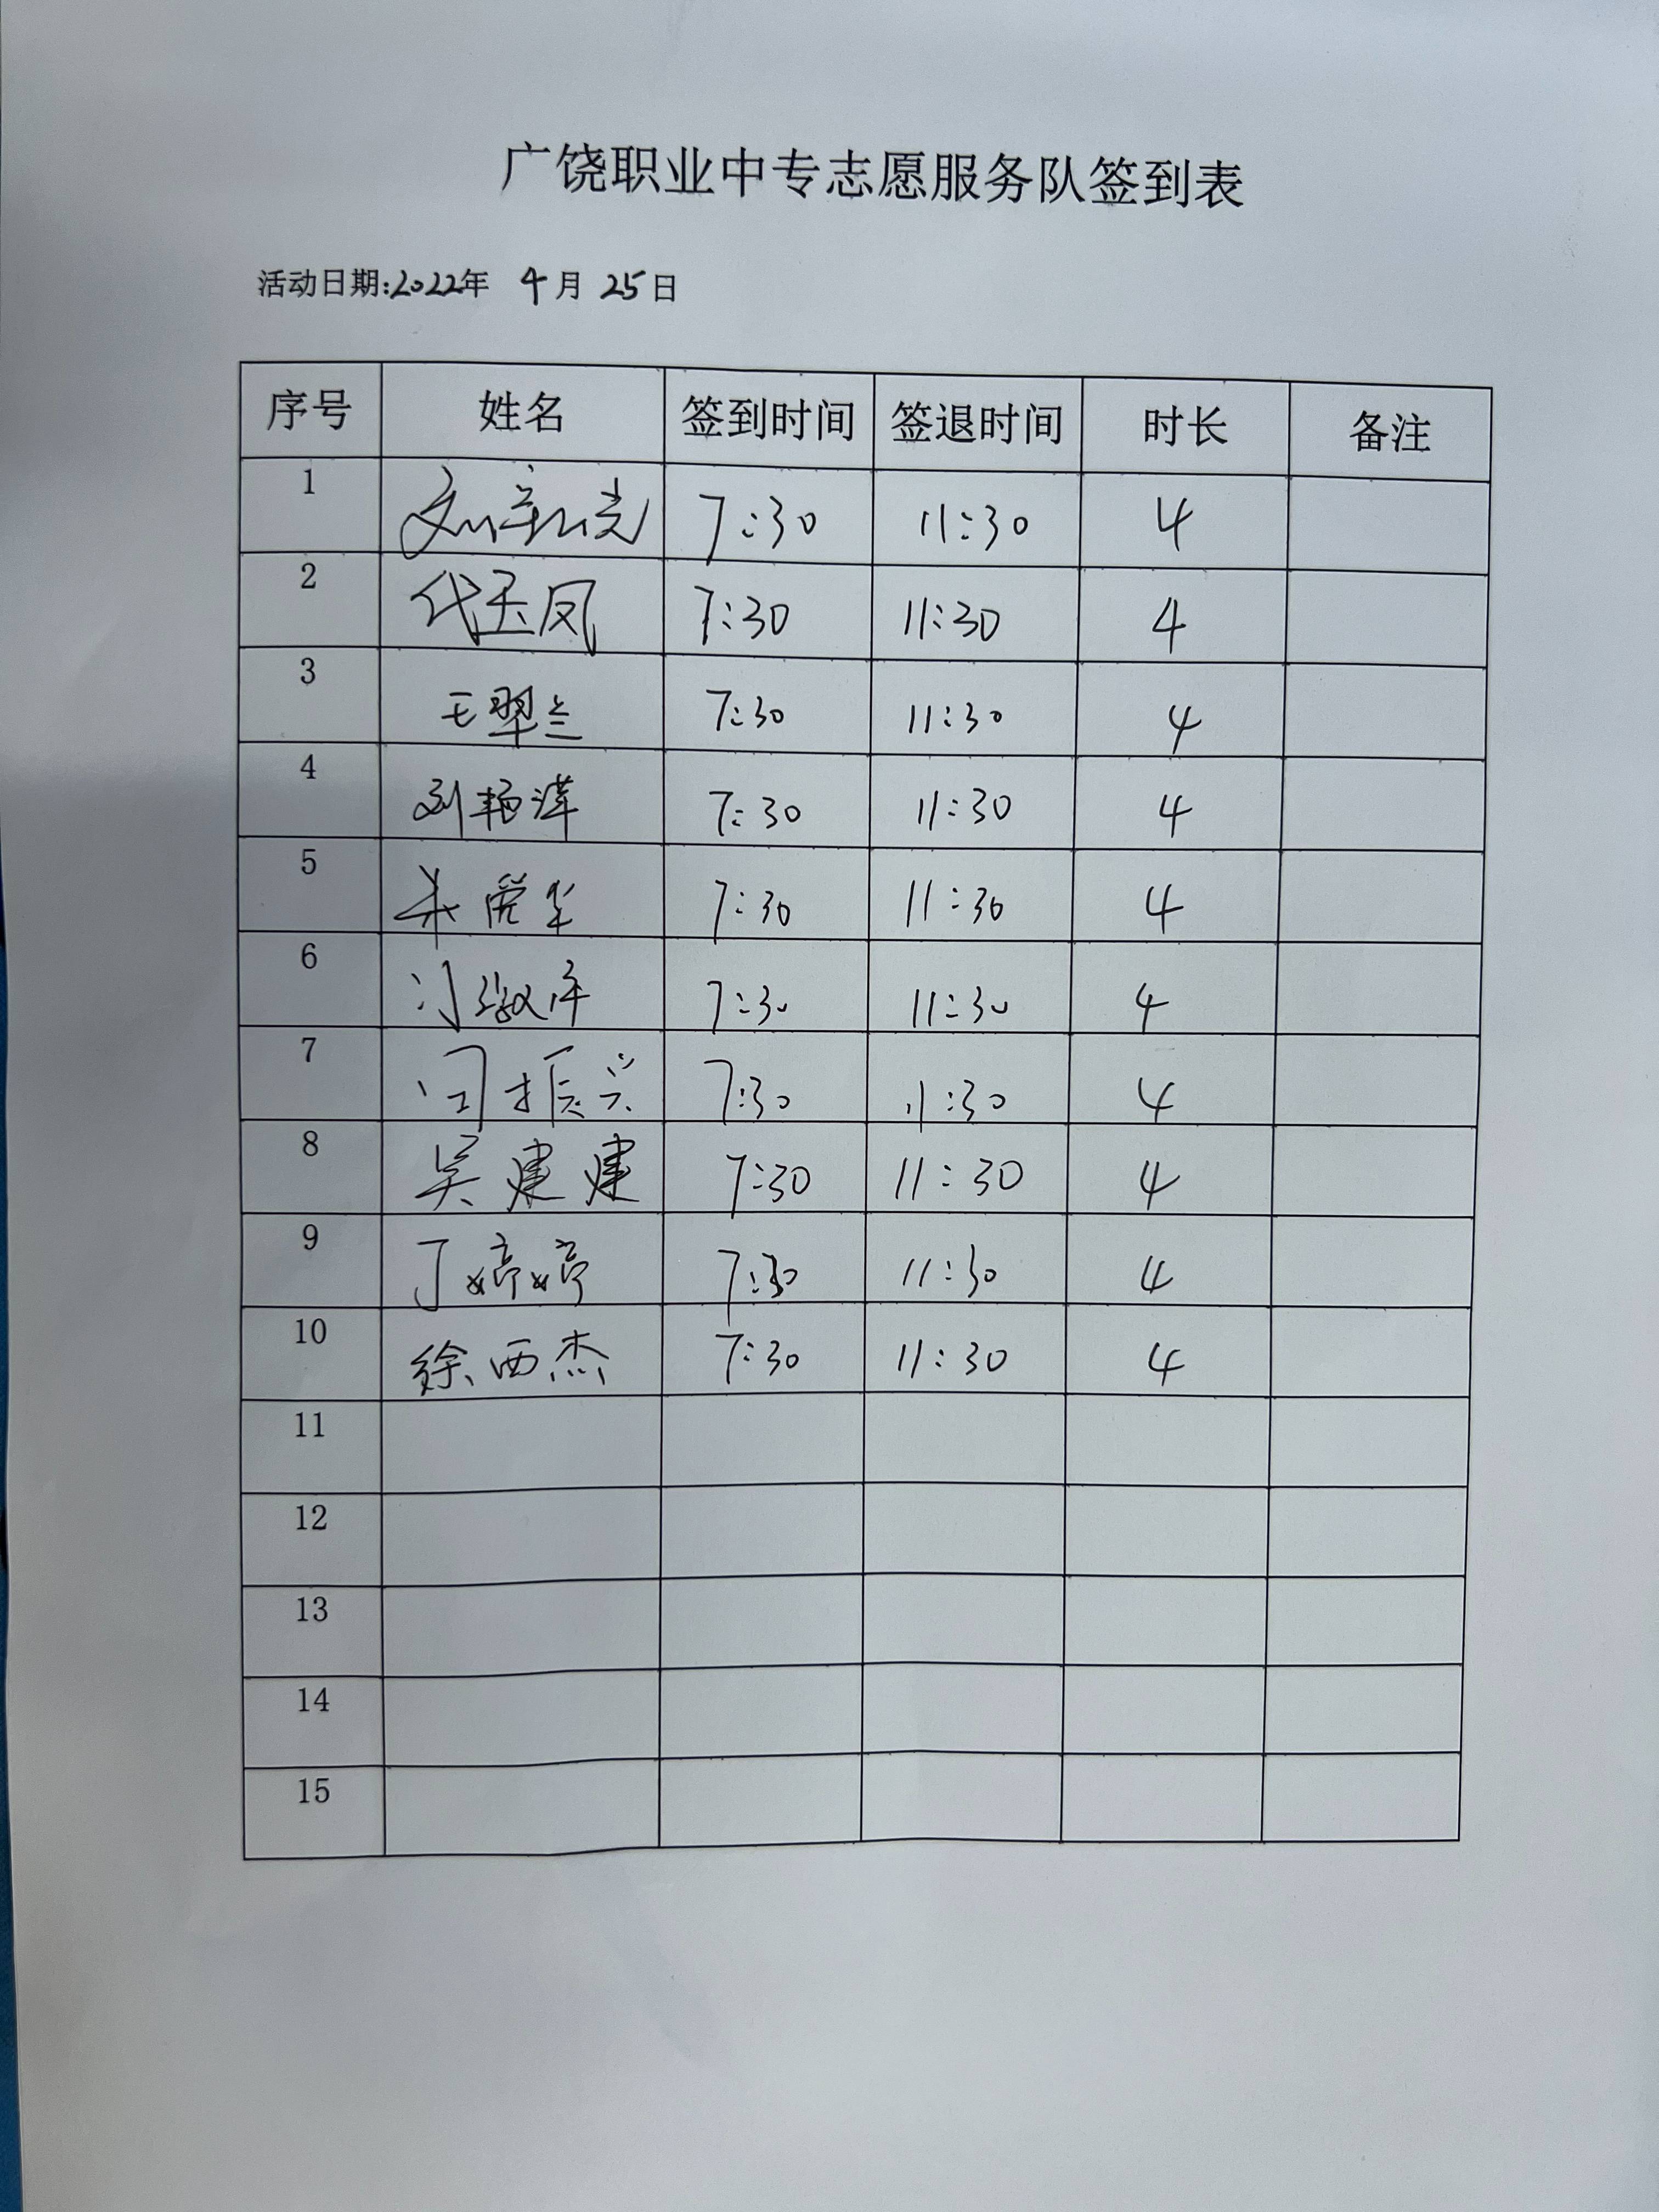 广饶职业中专志愿服务队签到表
活动日期:2022年 4月 25日
序号 姓名 签到时间 签退时间 时长 备注
1 7:30 11:30 4
2 代玉凤 7:30 11:30 4
3 王翠兰 7:30 11:30 4
4 刘艳萍 7:30 11:30 4
5 7:30 11:30 4
6 7:30 11:30 4
7 闫振兴 7:30 11:30 4
8 吴建建 7:30 11:30 4
9 丁婷婷 7:30 11:30 4
10 徐西杰 7:30 11:30 4
11
12
13
14
15